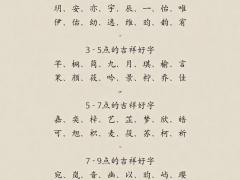 玥、安、亦、宇、辰、一、怡、唯
伊、怡、幼、逸、维、昀、韵、宥
3-5点的吉祥好字
芊、楠、茼、九、月、琪、榆、言
果、颜、筱、吟、景、柠、乔、佳
5-7点的吉祥好字
嘉、奕、梓、艺、芷、梦、欣、皓
可、旭、枳、麦、筱、苏、柯、析
7-9点的吉祥好字
宛、岚、音、幽、以、昀、屿、璎